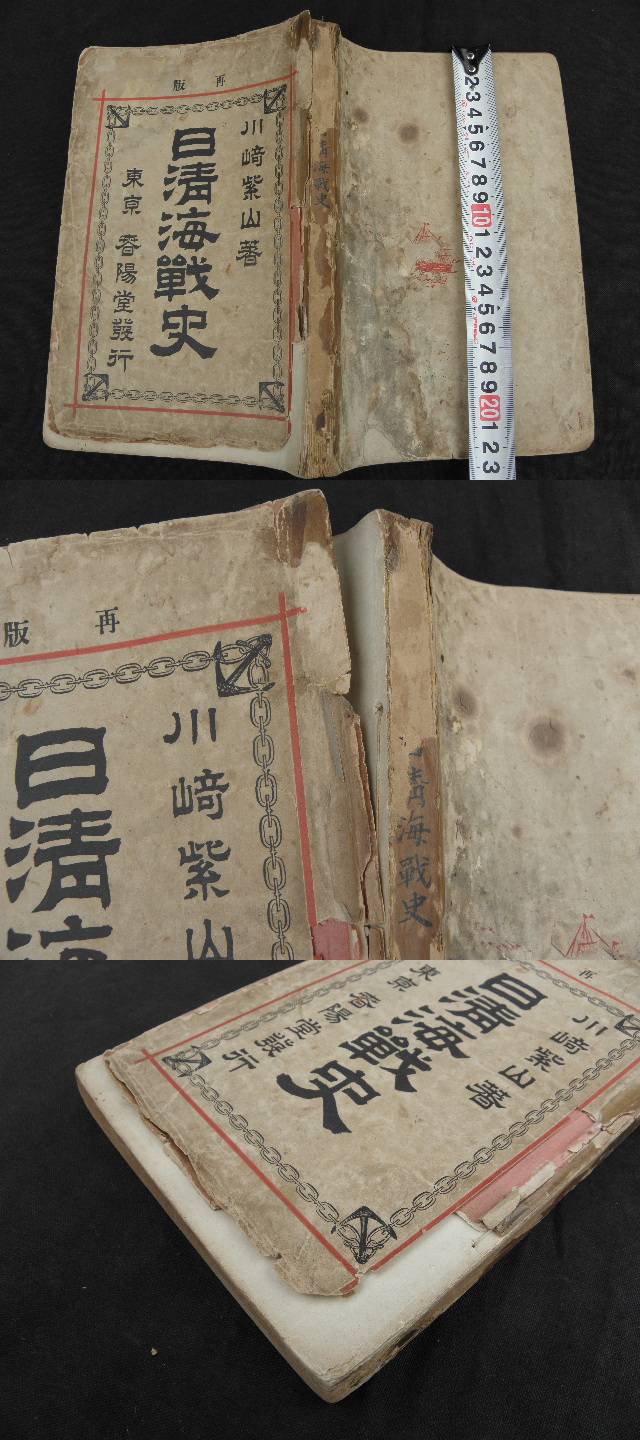 再版
川﨑紫山著
日清海戰史
東京 春陽堂發行
清海戰史
2 3 4 5 6 7 8 9 10 1 2 3 4 5 6 7 8 9 20 1 2 3
再版
川﨑紫山
日清海
清海戰史
再
川﨑紫山著
日清海戰史
東京 春陽堂發行